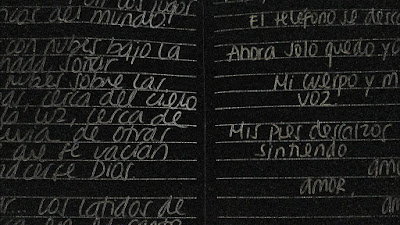 con los lugos
del mundo
con nubes bajo la
nada soñar
nubes sobre las
cerca del cielo
la luz, cerca de
de otrar
que se vacían
Dios
Los latidos de
El teléfono se desco
Ahora solo quedo yo
Mi cuerpo y m
voz.
Mis pies descalzos
sintiendo
amo
amor,
am